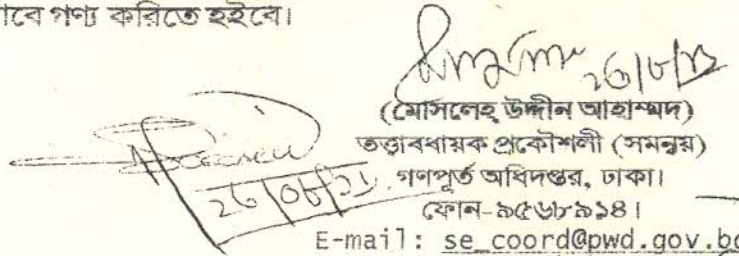 ভাবে গণ্য করিতে হইবে।
(মোসলেহ্ উদ্দীন আহাম্মদ)
তত্ত্বাবধায়ক প্রকৌশলী (সমন্বয়)
গণপূর্ত অধিদপ্তর, ঢাকা।
ফোন-৯৫৬৮৯১৪।
E-mail: se_coord@pwd.gov.bd